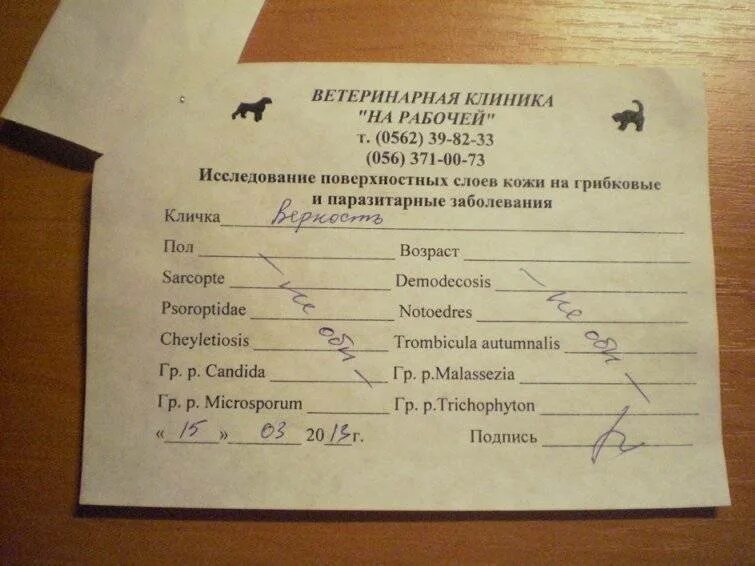 ВЕТЕРИНАРНАЯ КЛИНИКА
"НА РАБОЧЕЙ"
т. (0562) 39-82-33
(056) 371-00-73
Исследование поверхностных слоев кожи на грибковые
и паразитарные заболевания
Кличка Верность
Пол Возраст
Sarcopte Demodecosis
Psoroptidae Notoedres
Cheyletiosis Trombicula autumnalis
не обн не обн
Гр. р. Candida Гр. р.Malassezia
Гр. р. Microsporum Гр. р.Trichophyton
« 15 » 03 2013г. Подпись